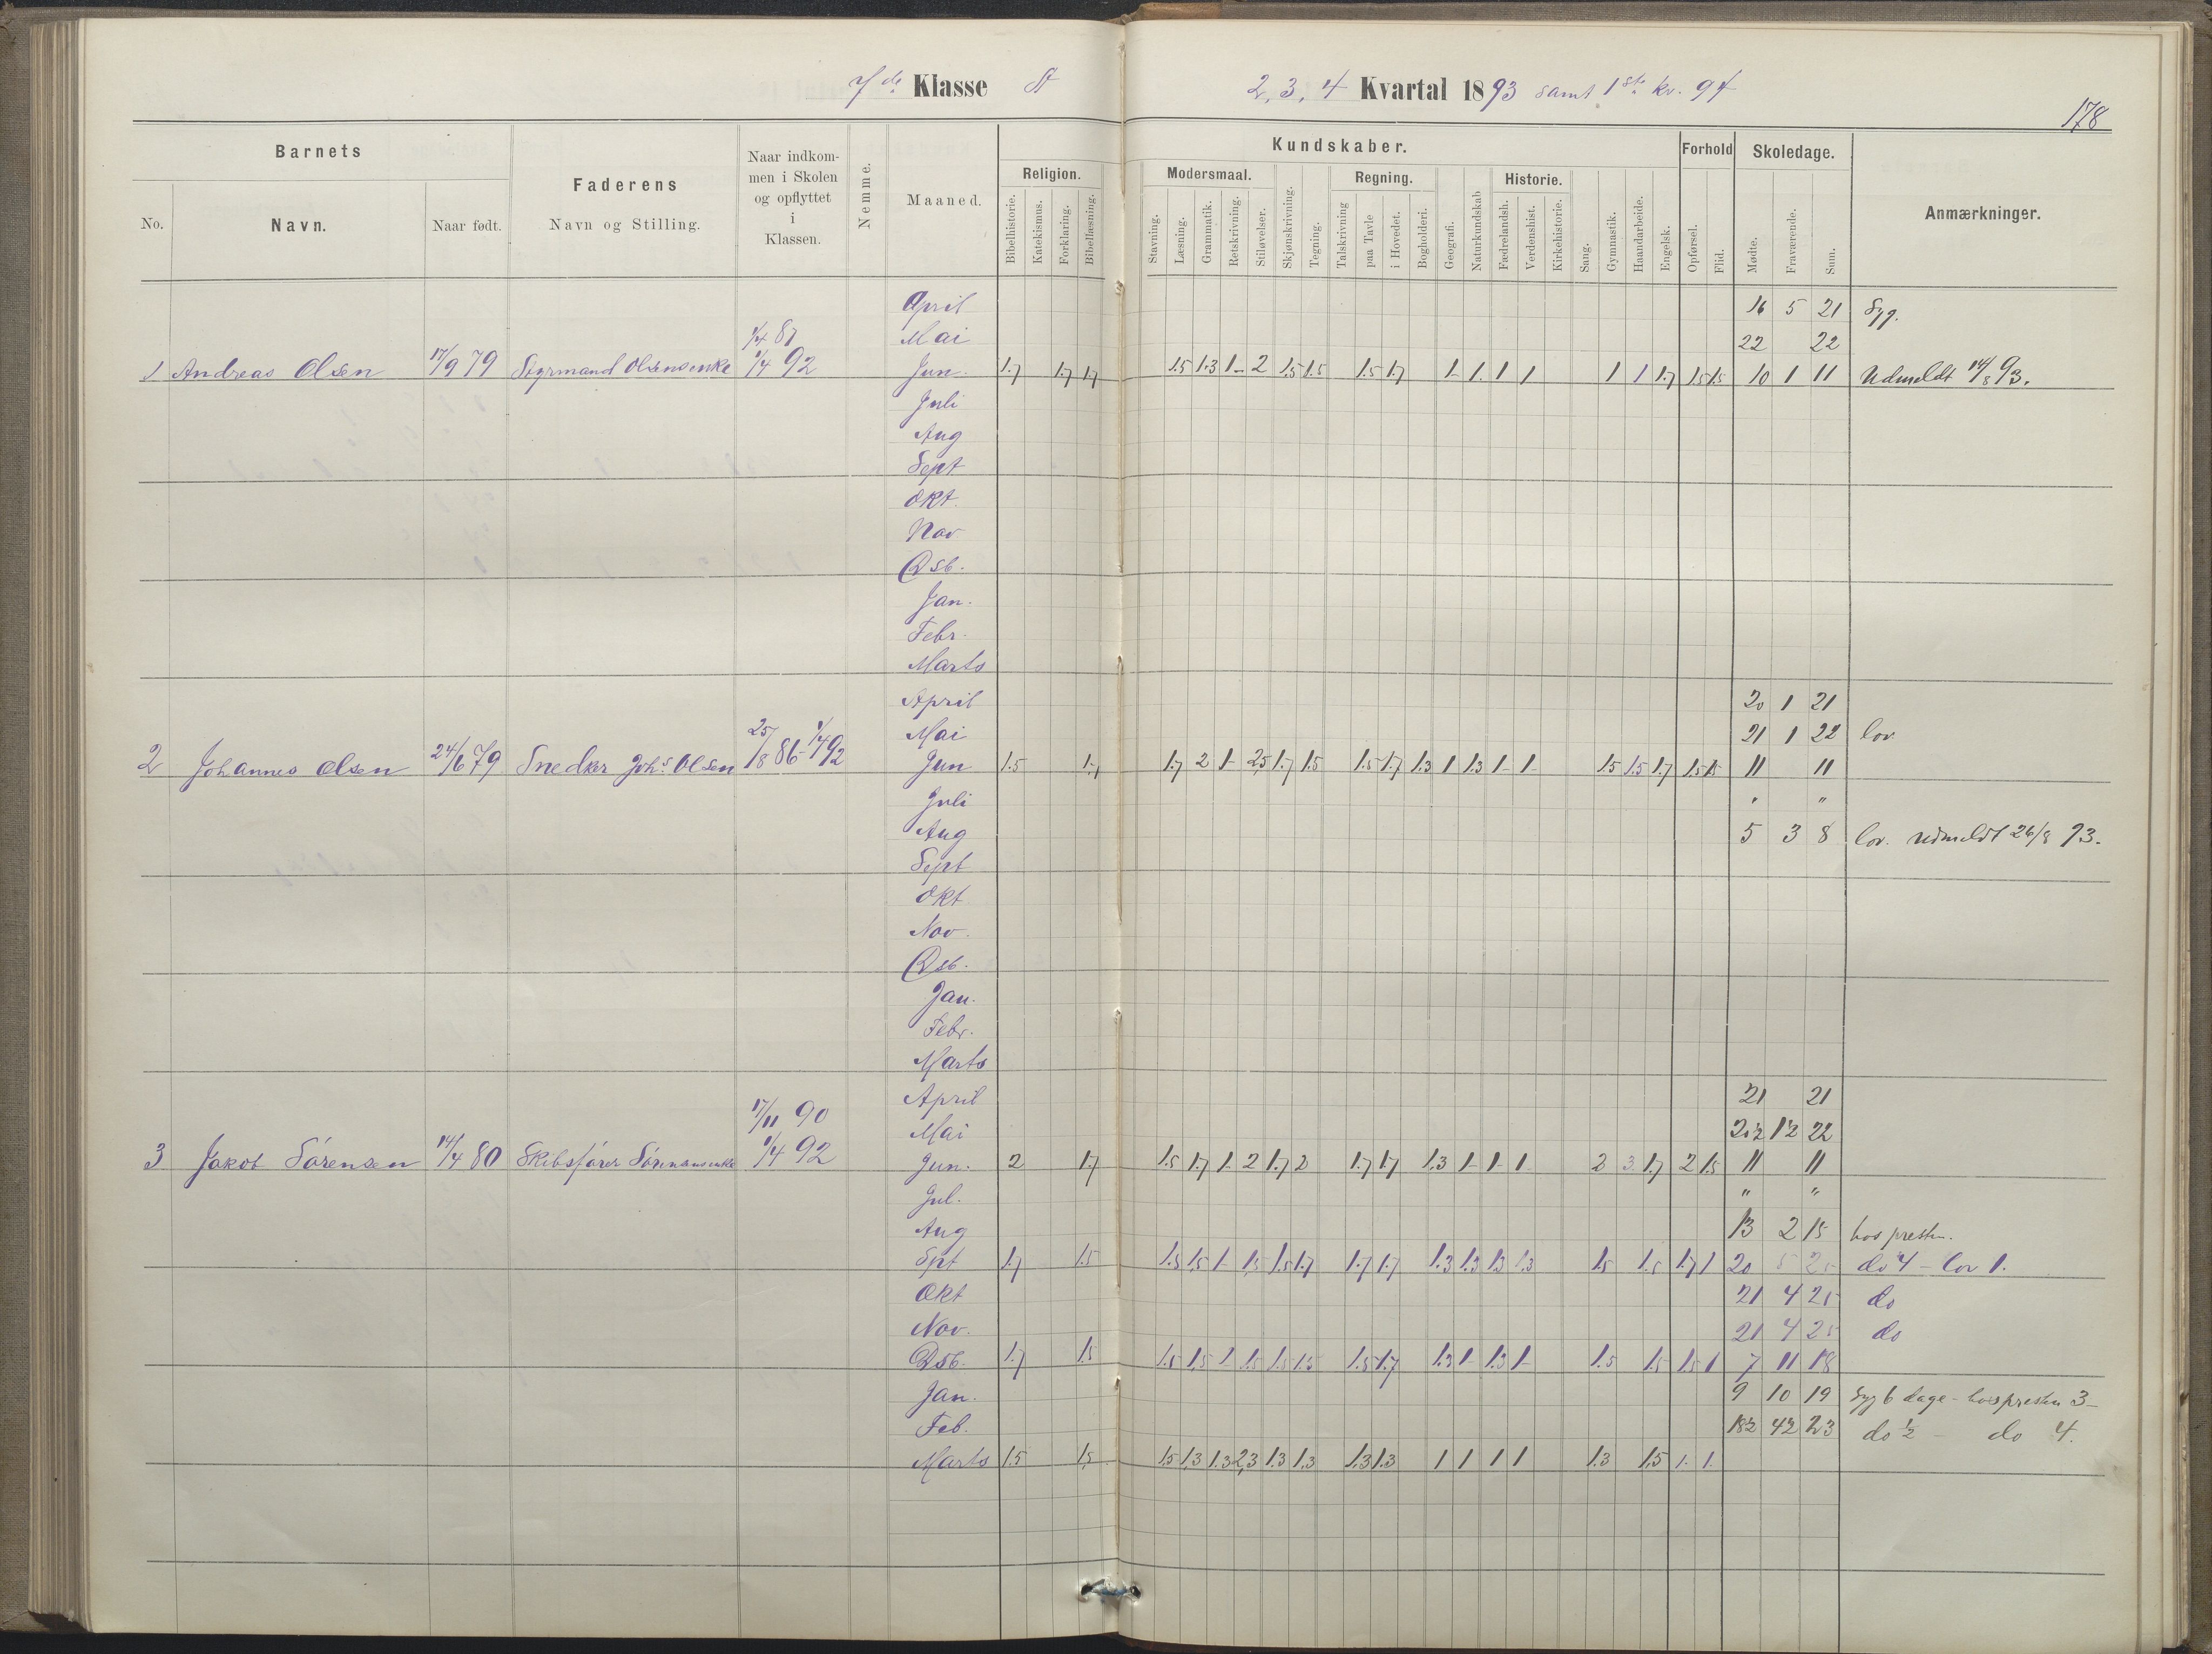 7de Klasse A
2, 3, 4 Kvartal 1893 samt 1ste kv. 94
178
Barnets
No.
Navn.
Naar født.
Faderens
Navn og Stilling.
Naar indkom-
men i Skolen
og opflyttet
i
Klassen.
Nemme.
Maaned.
Kundskaber.
Religion.
Bibelhistorie.
Katekismus.
Forklaring.
Bibellæsning.
Modersmaal.
Stavning.
Læsning.
Grammatik.
Retskrivning.
Stiløvelser.
Skjønskrivning.
Tegning.
Regning.
Talskrivning
paa Tavle
i Hovedet.
Bogholderi.
Geografi.
Naturkundskab
Historie.
Fædrelandsh.
Verdenshist.
Kirkehistorie.
Sang.
Gymnastik.
Haandarbeide.
Engelsk.
Forhold
Opførsel.
Flid.
Skoledage.
Mødte.
Fraværende.
Sum.
Anmærkninger.
April 16 5 21 Syg.
1/4 87 Mai 22 22
1 Andreas Olsen 17/9 79 Styrmand Olsens enke 1/4 92 Jun. 1.7 1.7 1.7 1.5 1.3 1- 2 1.5 1.5 1.5 1.7 1- 1. 1 1 1 1 1.7 1.5 1.5 10 1 11 Udmeldt 14/8 93.
Juli
Aug
Sept
Okt.
Nov
Dsb.
Jan.
Febr.
Marts
April 20 1 21
Mai 21 1 22 lov
2 Johannes Olsen 24/6 79 Snedker Johs. Olsen 25/8 86 - 1/4 92 Jun 1.5 1.7 1.7 2 1- 2,5 1.7 1.5 1.5 1.7 1.3 1 1.3 1- 1- 1.5 1.5 1.7 1.5 1.5 11 11
Juli " "
Aug 5 3 8 lov. udmeldt 26/8 93.
Sept
Okt
Nov.
Dsb.
Jan.
Febr.
Marts
17/11 90 April 21 21
Mai 20½ 1½ 22
3 Jakob Sørensen 14/4 80 Skibsfører Sørensens enke 1/4 92 Jun. 2 1.7 1.5 1.7 1. 2 1.7 2 1.7 1.7 1.3 1- 1- 1- 2 3. 1.7 2 1.5 11 11
Jul. " "
Aug 13 2 15 hos presten.
Spt 1.7 1.5 1.5 1.5 1- 1.5 1.5 1.7 1.7 1.7 1.3 1.3 1.3 1.3 1.5 1.5 1.7 1 20 5 25 do 4 - lov 1.
Okt 21 4 25 do
Nov. 21 4 25 do
Dsb. 1.7 1.5 1.5 1.5 1- 1.5 1.5 1.5 1.5 1.7 1.3 1- 1.3 1- 1.5 1.5 1.5 1 7 11 18
Jan. 9 10 19 Syg 6 dage - hos presten 3-
Feb. 18½ 4½ 23 do ½ - do 4.
Marts 1.5 1.5 1.5 1.3 1.3 2,3 1.3 1.3 1.3 1.3 1 1 1 1 1.3 1.5 1. 1.